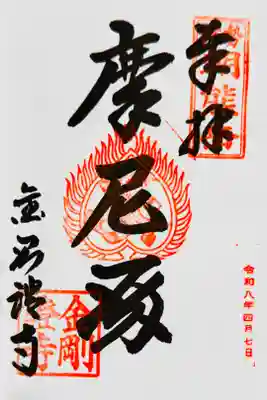 奉拝
令和八年四月七日
摩尼殿
金剛證寺
金剛
證寺